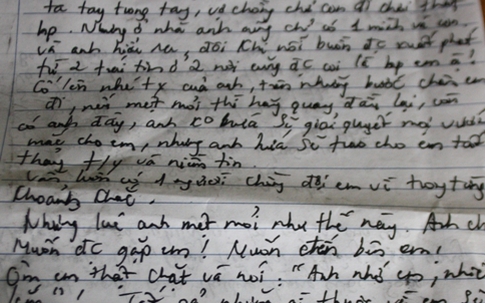 ta tay trong tay, vợ chồng chở con đi chơi thật
hp. Nhưng ở nhà anh cũng chỉ có 1 mình và con.
và anh hiểu ra, đôi khi nỗi buồn đc xuất phát
từ 2 trái tim ở 2 nơi cũng đc coi là hp em ạ!
Cố lên nhé ty của anh, trên những bước chân em
đi, nếu mệt mỏi thì hãy quay đầu lại, vẫn
có anh đây, anh ko hứa sẽ giải quyết mọi vướng
mắc cho em, nhưng anh hứa sẽ trao cho em tất
thảy t/y và niềm tin.
Vẫn luôn có 1 người chờ đợi em về trong từng
khoảnh khắc.
Những lúc anh mệt mỏi như thế này. Anh ch
Muốn đc gặp em! Muốn đến bên em!
Ôm em thật chặt và nói: "Anh nhớ em, nhiề